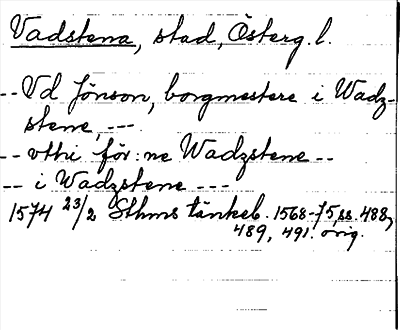 Vadstena, stad, Österg. l.
-- Vd Jönson, borgmestere i Wadz-
stene, ---
-- vthi för:ne Wadzstene --
-- i Wadzstene ---
1574 23/2 Sthms tänkeb. 1568-75, ss. 488,
489, 491. orig.